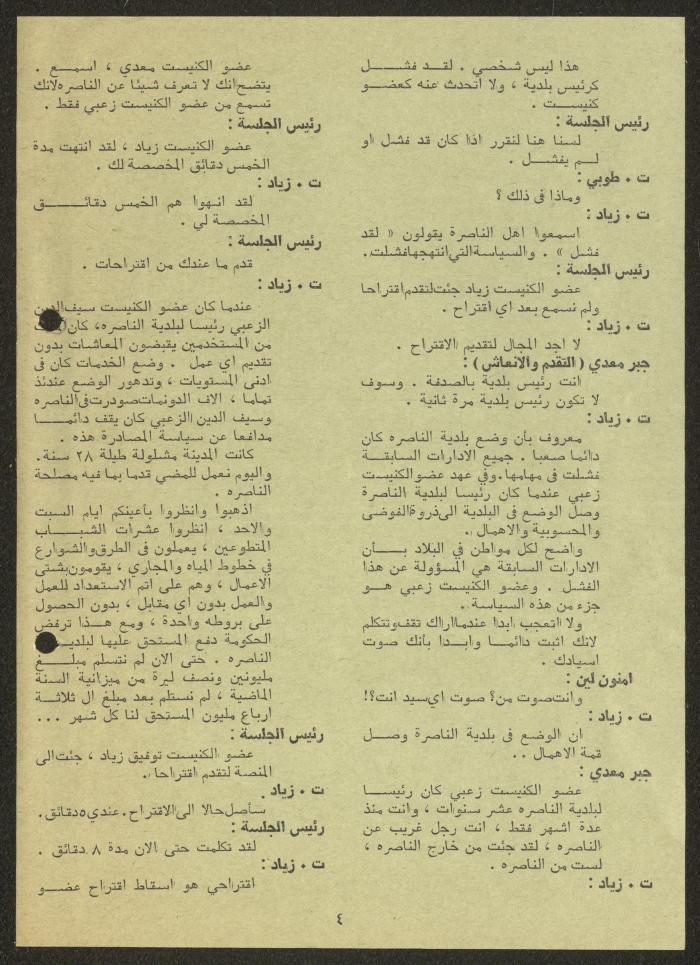 هذا ليس شخصي . لقد فشل
كرئيس بلدية ، ولا اتحدث عنه كعضو
كنيست .
رئيس الجلسة :
لسنا هنا لنقرر اذا كان قد فشل او
لم يفشل .
ت . طوبي :
وماذا في ذلك ؟
ت . زياد :
اسمعوا اهل الناصرة يقولون « لقد
فشل » . والسياسة التي انتهجها فشلت .
رئيس الجلسة :
عضو الكنيست زياد جئت لتقدم اقتراحا
ولم نسمع بعد اي اقتراح .
ت . زياد :
لا اجد المجال لتقديم الاقتراح .
جبر معدي ( التقدم والانعاش ) :
انت رئيس بلدية بالصدفة . وسوف
لا تكون رئيس بلدية مرة ثانية .
ت . زياد :
معروف بأن وضع بلدية الناصره كان
دائما صعبا . جميع الادارات السابقة
فشلت في مهامها . وفي عهد عضو الكنيست
زعبي عندما كان رئيسا لبلدية الناصرة
وصل الوضع في البلدية الى ذروة الفوضى
والمحسوبية والاهمال .
واضح لكل مواطن في البلاد بأن
الادارات السابقة هي المسؤولة عن هذا
الفشل . وعضو الكنيست زعبي هو
جزء من هذه السياسة .
ولا اتعجب ابدا عندما اراك تقف وتتكلم
لانك اثبت دائما وابدا بأنك صوت
اسيادك .
امنون لين :
وانت صوت من؟ صوت اي سيد انت؟!
ت . زياد :
ان الوضع في بلدية الناصرة وصل
قمة الاهمال . .
جبر معدي :
عضو الكنيست زعبي كان رئيسا
لبلدية الناصره عشر سنوات ، وانت منذ
عدة اشهر فقط ، انت رجل غريب عن
الناصره ، لقد جئت من خارج الناصره ،
لست من الناصره .
ت . زياد :
عضو الكنيست معدي ، اسمع .
يتضح انك لا تعرف شيئا عن الناصره لانك
تسمع من عضو الكنيست زعبي فقط .
رئيس الجلسة :
عضو الكنيست زياد ، لقد انتهت مدة
الخمس دقائق المخصصة لك .
ت . زياد :
لقد انهوا هم الخمس دقائق
المخصصة لي .
رئيس الجلسة :
قدم ما عندك من اقتراحات .
ت . زياد :
عندما كان عضو الكنيست سيف الدين
الزعبي رئيسا لبلدية الناصره، كان
من المستخدمين يقبضون المعاشات بدون
تقديم اي عمل . وضع الخدمات كان في
ادنى المستويات ، وتدهور الوضع عندئذ
تماما ، الاف الدونمات صودرت في الناصره
وسيف الدين الزعبي كان يقف دائما
مدافعا عن سياسة المصادرة هذه .
كانت المدينة مشلولة طيلة ٢٨ سنة .
واليوم نعمل للمضي قدما بما فيه مصلحة
الناصره .
اذهبوا وانظروا بأعينكم ايام السبت
والاحد ، انظروا عشرات الشباب
المتطوعين ، يعملون في الطرق والشوارع
في خطوط المياه والمجاري ، يقومون بشتى
الاعمال ، وهم على اتم الاستعداد للعمل
والعمل بدون اي مقابل ، بدون الحصول
على بروطه واحدة ، ومع هذا ترفض
الحكومة دفع المستحق عليها لبلدية
الناصره . حتى الان لم نتسلم مبلغ
مليونين ونصف ليرة من ميزانية السنة
الماضية ، لم نستلم بعد مبلغ ال ثلاثة
ارباع مليون المستحق لنا كل شهر ...
رئيس الجلسة :
عضو الكنيست توفيق زياد ، جئت الى
المنصة لتقدم اقتراحا .
ت . زياد .
سأصل حالا الى الاقتراح . عندي ٥ دقائق .
رئيس الجلسة :
لقد تكلمت حتى الان مدة ٨ دقائق .
ت . زياد :
اقتراحي هو اسقاط اقتراح عضو
٤